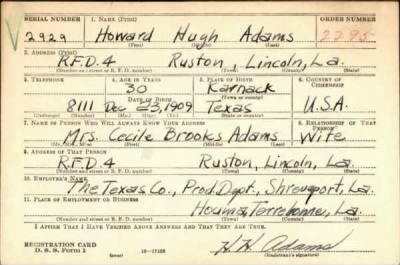 SERIAL NUMBER 1. NAME (Print) ORDER NUMBER
2929 Howard Hugh Adams 2295
(First) (Middle) (Last)
2. ADDRESS (Print)
R.F.D. 4 Ruston, Lincoln, La.
(Number and street or R. F. D. number) (Town) (County) (State)
3. TELEPHONE 4. AGE IN YEARS 5. PLACE OF BIRTH 6. COUNTRY OF CITIZENSHIP
30 Karnack
DATE OF BIRTH (Town or county)
8111 Dec 23, 1909 Texas U.S.A.
(Exchange) (Number) (Mo.) (Day) (Yr.) (State or country)
7. NAME OF PERSON WHO WILL ALWAYS KNOW YOUR ADDRESS 8. RELATIONSHIP OF THAT PERSON
Mrs. Cecile Brooks Adams Wife
(Mr., Mrs., Miss) (First) (Middle) (Last)
9. ADDRESS OF THAT PERSON
R.F.D. 4 Ruston, Lincoln, La
(Number and street or R. F. D. number) (Town) (County) (State)
10. EMPLOYER'S NAME
The Texas Co., Prod. Dept., Shreveport, La.
11. PLACE OF EMPLOYMENT OR BUSINESS
Houma, Terrebonne, La.
(Number and street or R. F. D. number) (Town) (County) (State)
I AFFIRM THAT I HAVE VERIFIED ABOVE ANSWERS AND THAT THEY ARE TRUE.
REGISTRATION CARD H H Adams
D. S. S. Form 1 (over) 16—17105 (Registrant's signature)